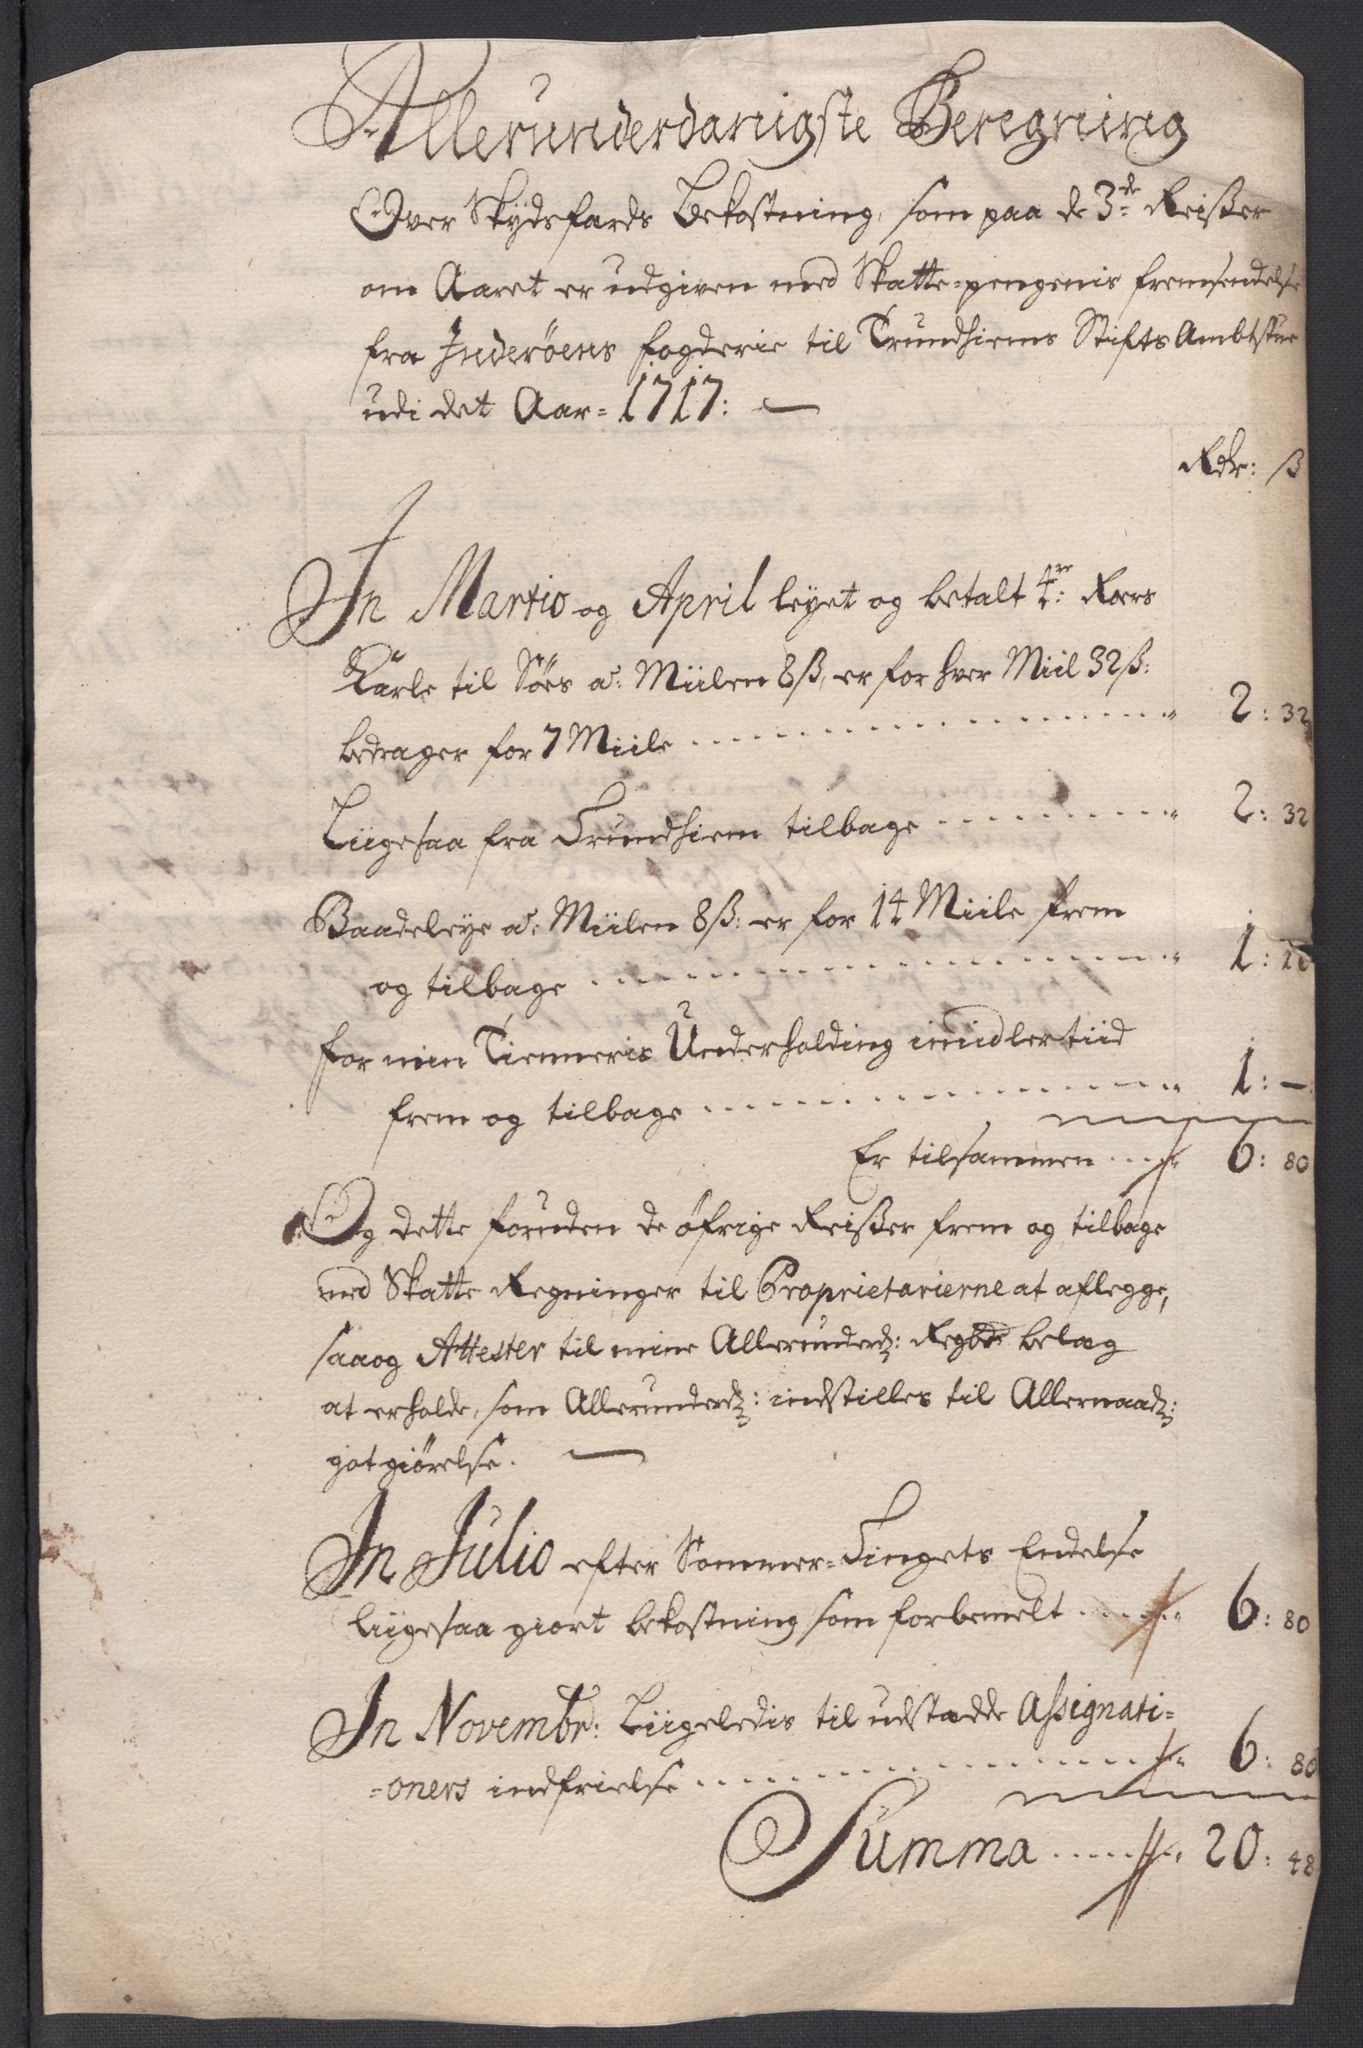 Allerunderdanigste Beregning
Over Skydsfærds Bekostning, som paa de 3de Reißer
om Aaret er udgiven med Skatte-pengenis fremsendelse
fra Inderöens fogderie til Trundhiems Stifts Ambtstue
udi det Aar = 1717: —
Rdr: ß
In Martio og April leyet og betalt 4re: Roers
Karle til Söes a: Miilen 8 ß, er for hver Miil 32 ß:
bedrager for 7 Miile 2: 32
Liigesaa fra Trundhiem tilbage 2: 32
Baadeleye a: Miilen 8 ß: er for 14 Miile frem
og tilbage 1:
for min Tienneris Underholding imidlertiid
frem og tilbage 1: —
Er tilsammen 6: 80
Og dette foruden de öfrige Reißer frem og tilbage
med Skatte Regninger til Proprietarierne at aflegge,
saaog Attester til mine Allerunderd: belæg
at erholde, som Allerunderd: indstilles til Allernaad:
gotgiörelse. —
In Julio efter Sommer-Tingets Endelse
liigesaa giort bekostning som forbemelt 6: 80
In Novembr: Liigeledis til udstædde Assignati=
=oners indfrielse 6: 80
Summa 20: 48